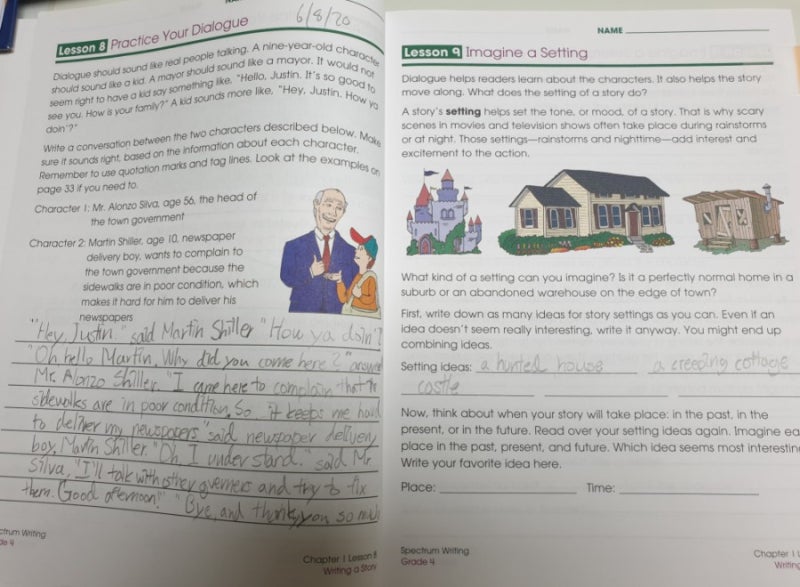 6/8/20
Lesson 8 Practice Your Dialogue
Dialogue should sound like real people talking. A nine-year-old character
should sound like a kid. A mayor should sound like a mayor. It would not
seem right to have a kid say something like, "Hello, Justin. It's so good to
see you. How is your family?" A kid sounds more like, "Hey, Justin. How ya
doin'?"
Write a conversation between the two characters described below. Make
sure it sounds right, based on the information about each character.
Remember to use quotation marks and tag lines. Look at the examples on
page 33 if you need to.
Character 1: Mr. Alonzo Silva, age 56, the head of
the town government
Character 2: Martin Shiller, age 10, newspaper
delivery boy, wants to complain to
the town government because the
sidewalks are in poor condition, which
makes it hard for him to deliver his
newspapers
"Hey, Justin" said Martin Shiller "How ya doin'?
"Oh hello Martin. Why did you come here?" answe
Mr. Alonzo Shiller. "I came here to complain that the
sidewalks are in poor condition. So it keeps me hard
to deliver my newspapers" said newspaper delivery
boy, Martin Shiller. "Oh, I understand." said Mr.
Silva, "I'll talk with other governers and try to fix
them. Good afternoon!" "Bye, and thank you so much
ctrum Writing
de 4
Chapter 1 Lesson 8
Writing a Story
NAME
Lesson 9 Imagine a Setting
Dialogue helps readers learn about the characters. It also helps the story
move along. What does the setting of a story do?
A story's setting helps set the tone, or mood, of a story. That is why scary
scenes in movies and television shows often take place during rainstorms
or at night. Those settings—rainstorms and nighttime—add interest and
excitement to the action.
What kind of a setting can you imagine? Is it a perfectly normal home in a
suburb or an abandoned warehouse on the edge of town?
First, write down as many ideas for story settings as you can. Even if an
idea doesn't seem really interesting, write it anyway. You might end up
combining ideas.
Setting ideas: a hunted house a creeping cottage
castle
Now, think about when your story will take place: in the past, in the
present, or in the future. Read over your setting ideas again. Imagine ea
place in the past, present, and future. Which idea seems most interestin
Write your favorite idea here.
Place: Time:
Spectrum Writing
Grade 4
Chapter 1 L
Writing